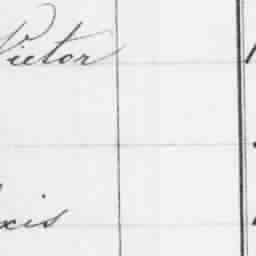 Victor
xis